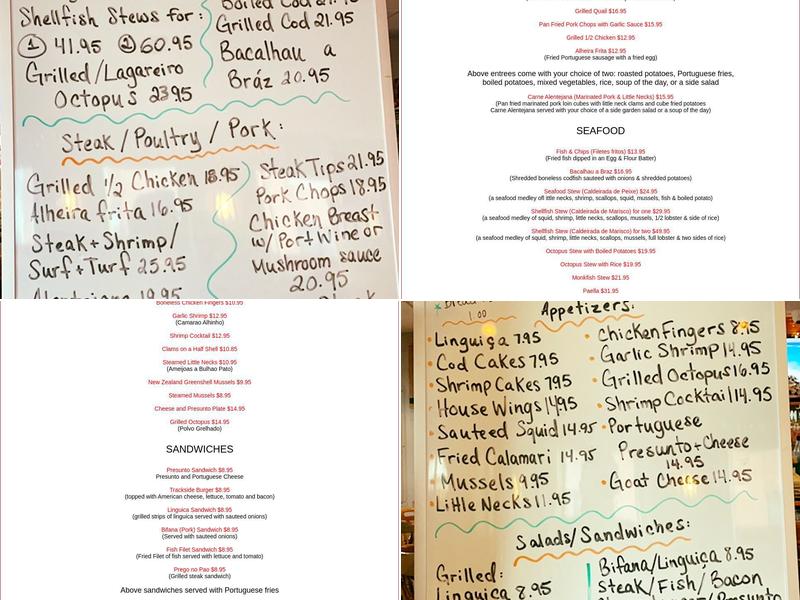 Shellfish Stews for:
① 41.95 ② 60.95
Grilled/Lagareiro
Octopus 23.95
Boiled Cod 21.95
Grilled Cod 21.95
Bacalhau a
Bráz 20.95
Steak / Poultry / Pork:
Grilled 1/2 Chicken 18.95
Alheira frita 16.95
Steak + Shrimp/
Surf + Turf 25.95
Alentejana 19.95
Steak Tips 21.95
Pork Chops 18.95
Chicken Breast
w/ Port Wine or
Mushroom sauce
20.95
Grilled Quail $16.95
Pan Fried Pork Chops with Garlic Sauce $15.95
Grilled 1/2 Chicken $12.95
Alheira Frita $12.95
(Fried Portuguese sausage with a fried egg)
Above entrees come with your choice of two: roasted potatoes, Portuguese fries,
boiled potatoes, mixed vegetables, rice, soup of the day, or a side salad
Carne Alentejana (Marinated Pork & Little Necks) $15.95
(Pan fried marinated pork loin cubes with little neck clams and cube fried potatoes
Carne Alentejana served with your choice of a side garden salad or a soup of the day)
SEAFOOD
Fish & Chips (Filetes fritos) $13.95
(Fried fish dipped in an Egg & Flour Batter)
Bacalhau a Braz $16.95
(Shredded boneless codfish sauteed with onions & shredded potatoes)
Seafood Stew (Caldeirada de Peixe) $24.95
(a seafood medley ofl little necks, shrimp, scallops, squid, mussels, fish & boiled potato)
Shellfish Stew (Caldeirada de Marisco) for one $29.95
(a seafood medley of squid, shrimp, little necks, scallops, mussels, 1/2 lobster & side of rice)
Shellfish Stew (Caldeirada de Marisco) for two $49.95
(a seafood medley of squid, shrimp, little necks, scallops, mussels, full lobster & two sides of rice)
Octopus Stew with Boiled Potatoes $19.95
Octopus Stew with Rice $19.95
Monkfish Stew $21.95
Paella $31.95
Boneless Chicken Fingers $10.95
Garlic Shrimp $12.95
(Camarao Alhinho)
Shrimp Cocktail $12.95
Clams on a Half Shell $10.85
Steamed Little Necks $10.95
(Ameijoas a Bulhao Pato)
New Zealand Greenshell Mussels $9.95
Steamed Mussels $8.95
Cheese and Presunto Plate $14.95
Grilled Octopus $14.95
(Polvo Grelhado)
SANDWICHES
Presunto Sandwich $8.95
Presunto and Portuguese Cheese
Trackside Burger $8.95
(topped with American cheese, lettuce, tomato and bacon)
Linguica Sandwich $8.95
(grilled strips of linguica served with sauteed onions)
Bifana (Pork) Sandwich $8.95
(Served with sauteed onions)
Fish Filet Sandwich $8.95
(Fried Filet of fish served with lettuce and tomato)
Prego no Pao $8.95
(Grilled steak sandwich)
Above sandwiches served with Portuguese fries
1.00
Appetizers:
• Linguiça 7.95
• Cod Cakes 7.95
• Shrimp Cakes 7.95
House Wings 14.95
• Sauteed Squid 14.95
• Fried Calamari 14.95
• Mussels 9.95
• Little Necks 11.95
• Chicken Fingers 8.95
• Garlic Shrimp 14.95
• Grilled Octopus 16.95
• Shrimp Cocktail 14.95
• Portuguese
Presunto + Cheese
14.95
• Goat Cheese 14.95
Salads/Sandwiches:
Grilled:
Linguica 8.95
Bifana/Linguiça 8.95
Steak/Fish/Bacon